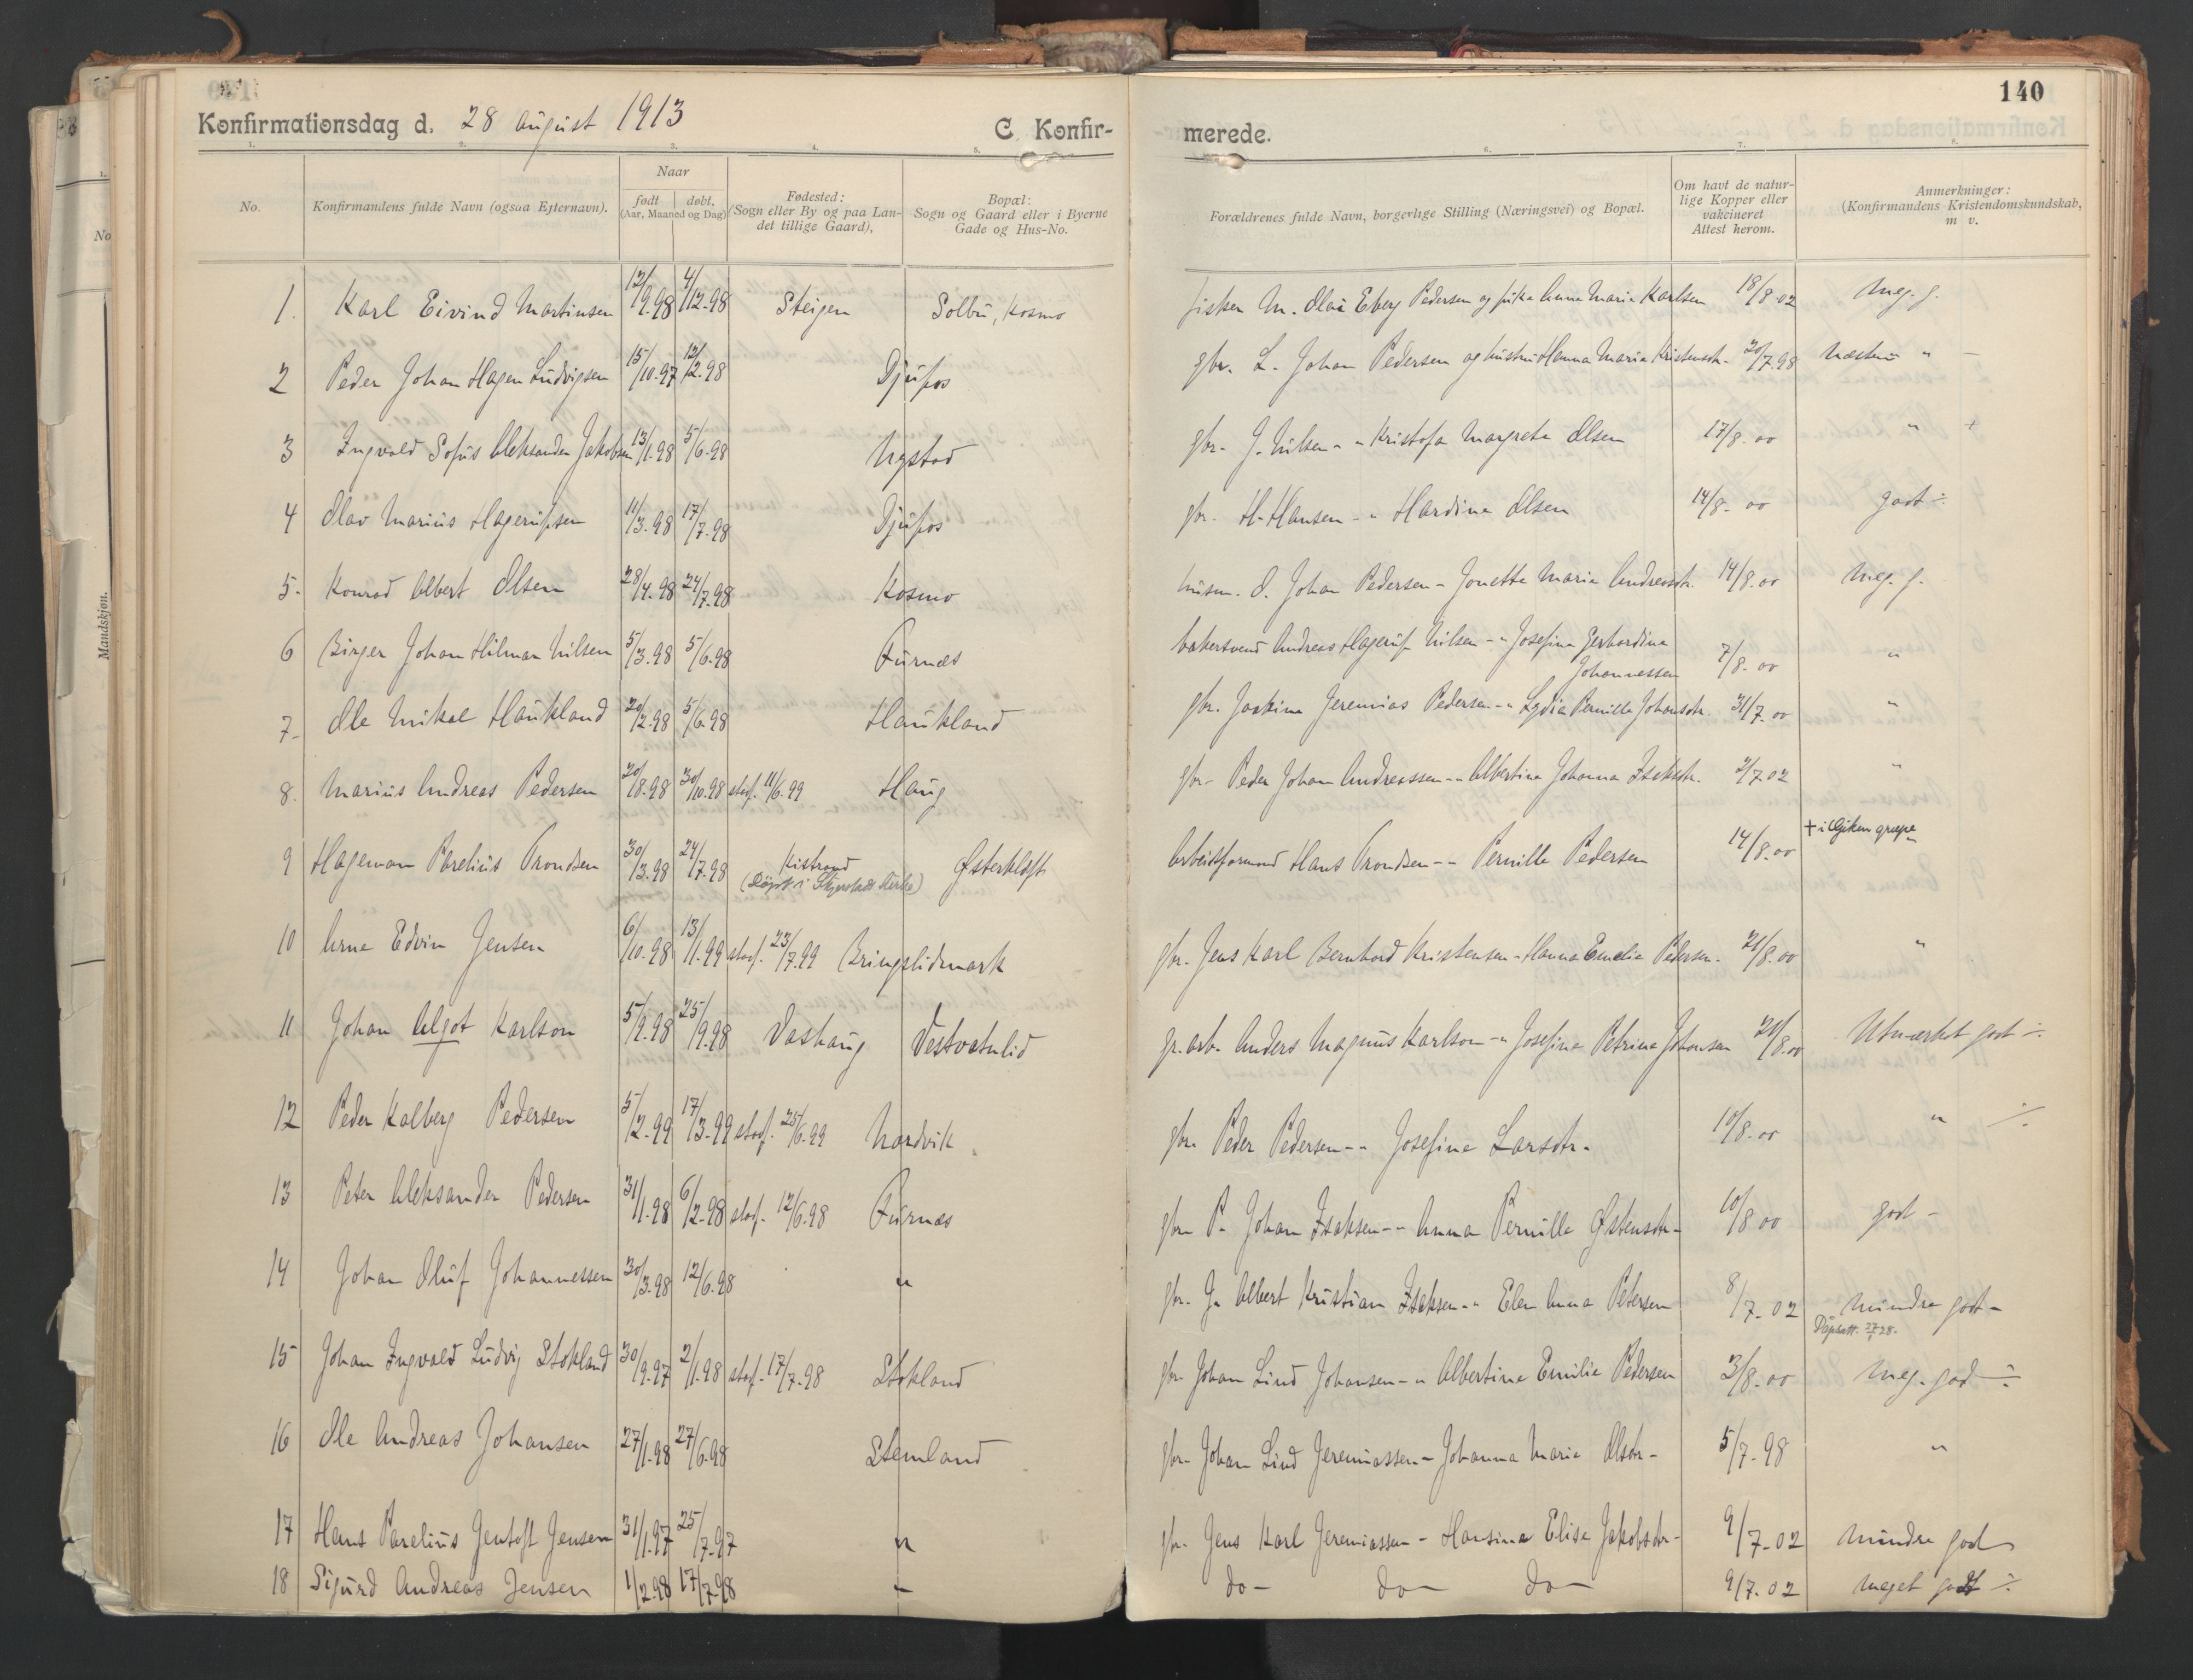 140
Konfirmationsdag d. 28 august 1913 C. Konfir- merede.
1. 2. 3. 4. 5. 6. 7. 8.
No. Konfirmandens fulde Navn (ogsaa Efternavn). Naar født døbt. (Aar, Maaned og Dag) Fødested: (Sogn eller By og paa Lan- det tillige Gaard), Bopæl: Sogn og Gaard eller i Byerne Gade og Hus-No. Forældrenes fulde Navn, borgerlige Stilling (Næringsvei) og Bopæl. Om havt de natur- lige Kopper eller vakcineret Attest herom. Anmerkninger: (Konfirmandens Kristendomskundskab, m v.
No
Mandskjøn.
1. Karl Eivind Martinsen 12/9.98 4/12.98 Steigen Solbu, Kosmo fisker M. Olai Eberg Pedersen og pike Anna Maria Karlsen 18/8.02 Meg. g.
2 Peder Johan Hagen Ludvigsen 15/10.97 12/2.98 Djupos gbr. L. Johan Pedersen og hustru Hanna Maria Kristensdtr. 20/7.98 Næsten " -
3 Ingvald Sofus Aleksander Jakobsen 13/1.98 5/6.98 Nystad gbr. J. Nilsen - " Kristofa Margreta Olsen 17/8.00 " +
4 Olav Marius Hagerupsen 11/3.98 17/7.98 Djupos gbr. H. Hansen - " Hardine Olsen 14/8.00 godt ÷
5. Konrad Albert Olsen 28/4.98 24/7.98 Kosmo husm. O. Johan Pedersen - Jonetta Maria Andreasdtr. 14/8.00 Meg. g.
6 Birger Johan Hilmar Nilsen 5/3.98 5/6.98 Furnes bakersvend Andreas Hagerup Nilsen - " Josefina Gerhardine Johannessen 7/8.00 "
7. Ole Mikal Haukland 20/2.98 5/6.98 Haukland gbr. Joakim Jeremias Pedersen - " Lydia Pernille Johansdtr. 31/7.00 "
8. Marius Andreas Pedersen 20/8.98 30/10.98 stadf. 11/6.99 Haug gbr. Peder Johan Andreassen - " Albertina Johanna Isaksdtr. 2/7.02 "
9 Hageman Parelius Trondsen 30/3.98 24/7.98 Kistrand (Døpt i Skjerstad Kirke) Østerkløft Arbeidsformand Hans Trondsen - " Pernille Pedersen 14/8.00 "
10 Arne Edvin Jensen 6/10.98 13/1.99 stadf. 23/7.99 Bringslidmark gbr. Jens Karl Bernhard Kristensen - Hanna Emelie Pedersen. 21/8.00 "
11 Johan Algot Karlson 5/9.98 25/9.98 Vashaug Vestvatnlid gr. arb. Anders Magnus Karlson - " Josefine Petrine Johansen 21/8.00 Utmærket godt ÷
12 Peder Kolberg Pedersen 5/2.99 17/3.99 stadf. 25/6.99 Nordvik gbr. Peder Pedersen - " Josefine Larsdtr. 10/8.00 " ÷
13 Peter Aleksander Pedersen 31/1.98 6/2.98 stadf. 12/6.98 Furnes gbr. P. Johan Isaksen - " Anna Pernille Østensdtr. 10/8.00 god -
14 Johan Oluf Johannessen 30/3.98 12/6.98 " gbr. J. Albert Kristian Isaksen - " Elen Anna Petersen 8/7.02 Mindre godt -
15 Johan Ingvald Ludvig Stokland 30/9.97 2/1.98 stadf. 17/7.98 Stokland gbr. Johan Lind Johansen - " Albertine Emilie Pedersen 3/8.00 Meg. god ÷
16 Ole Andreas Johansen 27/1.98 27/6.98 Stemland gbr. Johan Lind Jeremiassen - Johanna Maria Olsdtr. 5/7.98 "
17 Hans Parelius Gentoft Jensen 31/1.97 25/7.97 " gbr. Jens Karl Jeremiassen - Hansine Elise Jakobsdtr. 9/7.02 Mindre god
18 Sigurd Andreas Jensen 1/2.98 17/7.98 " do - do - do - 9/7.02 Meget godt ÷